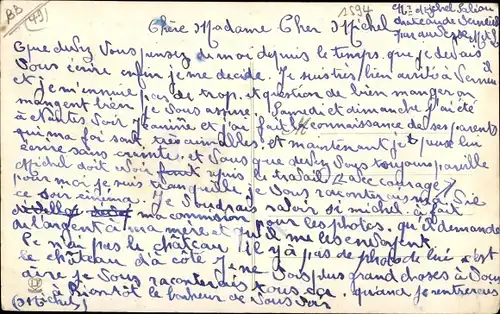 BB
(49)
1594
Mr Michel
château de Verneil
Chère Madame Cher Michel
Que devez vous pensez de moi depuis le temps que je devais
vous écrire enfin je me decide. Je suis très bien arrivé à
et je m'ennuie pas de trop. et question de bien manger on
mangent bien je vous assure. Samedi et dimanche j'ai été
à Nantes voir Jeanine et j'ai fait connaissance de ses parents
qui ma foi sont très aimables et maintenant je peux lui
écrire sans crainte. et vous que devez vous toujours pareille
Michel doit avoir puis le travail avec courage
pour moi je suis tranquille je vous raconterais ma vie
ce cinema. Je voudrais savoir si michel a fait
ma commision pour les photos, qu'il demande
de l'argent à ma mère et qu'il me les envoyent.
Ce n'ai pas le château il y a pas de photo de lui c'est
le château d'à côté je ne vois plus grand choses à vous
dire je vous raconterais tous ça. quand je rentrerais
à Bientôt le bonheur de vous voir
(Michel)